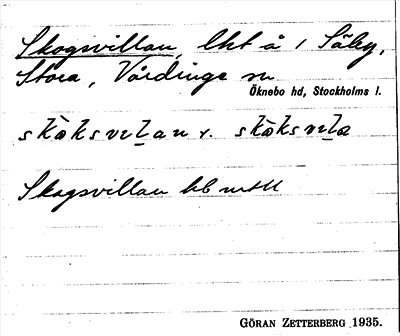 Skogsvillan, lht å 1 Säby,
Stora, Vårdinge sn
Öknebo hd, Stockholms l.
skòksvịlan v. skòksvịla
Skogsvillan
GÖRAN ZETTERBERG 1935.